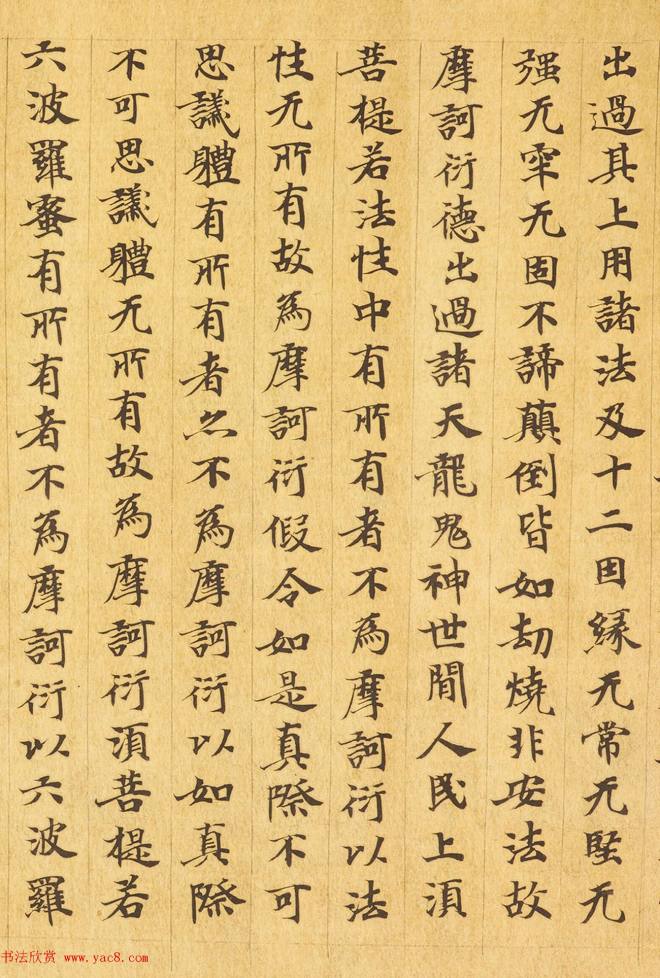 出過其上用諸法及十二因緣无常无堅无
强无牢无固不諦顛倒皆如劫燒非安法故
摩訶衍德出過諸天龍鬼神世間人民上須
菩提若法性中有所有者不為摩訶衍以法
性无所有故為摩訶衍假令如是真際不可
思議體有所有者亦不為摩訶衍以如真際
不可思議體无所有故為摩訶衍須菩提若
六波羅蜜有所有者不為摩訶衍以六波羅
书法欣赏 www.yac8.com